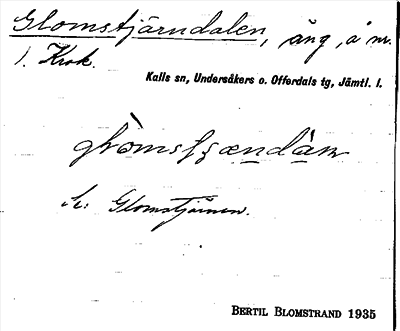 Glomstjärndalen, äng, å nr.
1. Krok.
Kalls sn, Undersåkers o. Offerdals tg, Jämtl. l.
Glomstjärnen.
BERTIL BLOMSTRAND 1935